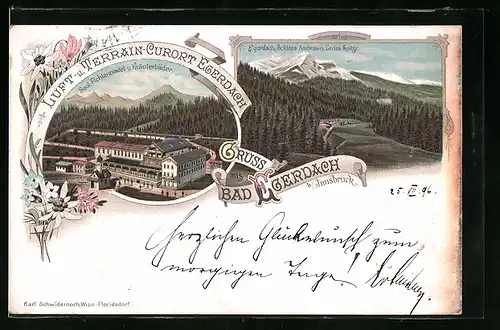 LUFT- u. TERRAIN-CURORT EGERDACH
Sool-Fichtennadel u. Kräuterbäder.
Egerdach, Schloss Ambras u. Serles Spitze
GRUSS
aus
BAD EGERDACH
b/ Innsbruck
25. VII 96.
Herzlichen Glückwunsch zum
morgigen Tage!
Karl Schwidernoch, Wien-Floridsdorf.